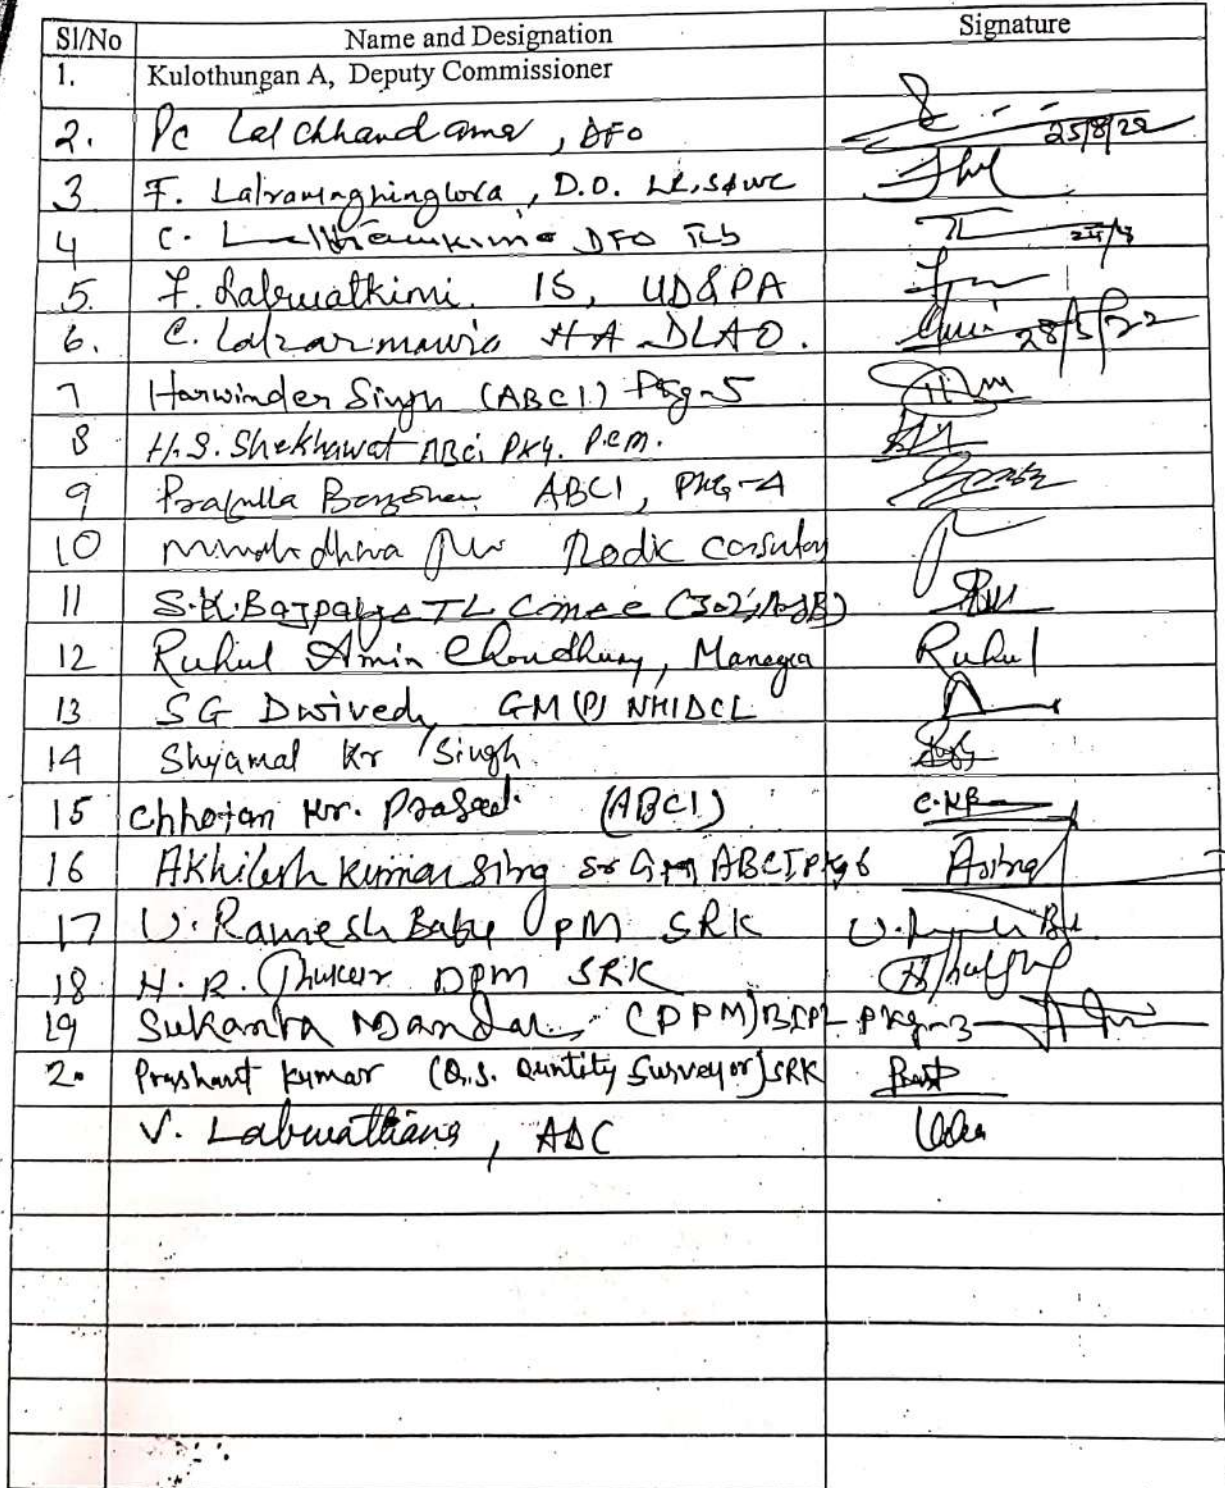 Sl/No Name and Designation Signature
1. Kulothungan A, Deputy Commissioner
2. Pc Lalchhandama, DFO 25/8/22
3 F. Lalramnghinglova, D.O. LR, S&WC
4 C. DFO Tlb
5. F. Lalruatkimi. IS, UD&PA
6. C. Lalzarmawia HA DLAO. 28/5/22
7 Harwinder Singh (ABCI) Pkg-5
8 H.S. Shekhawat ABCi PKG. P.C.M.
9 Prafulla ABCI, PKG-4
10 dhiva Rodic
11 S.K. Bajpai TL
12 Ruhul Amin Choudhury, Manager Ruhul
13 SG Dwivedi, GM (P) NHIDCL
14 Shyamal Kr Singh
15 Chhotan Kr. Prasad. (ABCI) C.KP
16 Akhilesh kumar Sing Sr GM ABCI PKg 6
17 U. Ramesh Babu PM SRK
18 H. R. DPM SRK
19 Sukanta Mandal (DPM) BIPL PKg-3
20 Prashant Kumar (Q.S. Quntity Surveyor) SRK
V. Lalruatliana, ADC